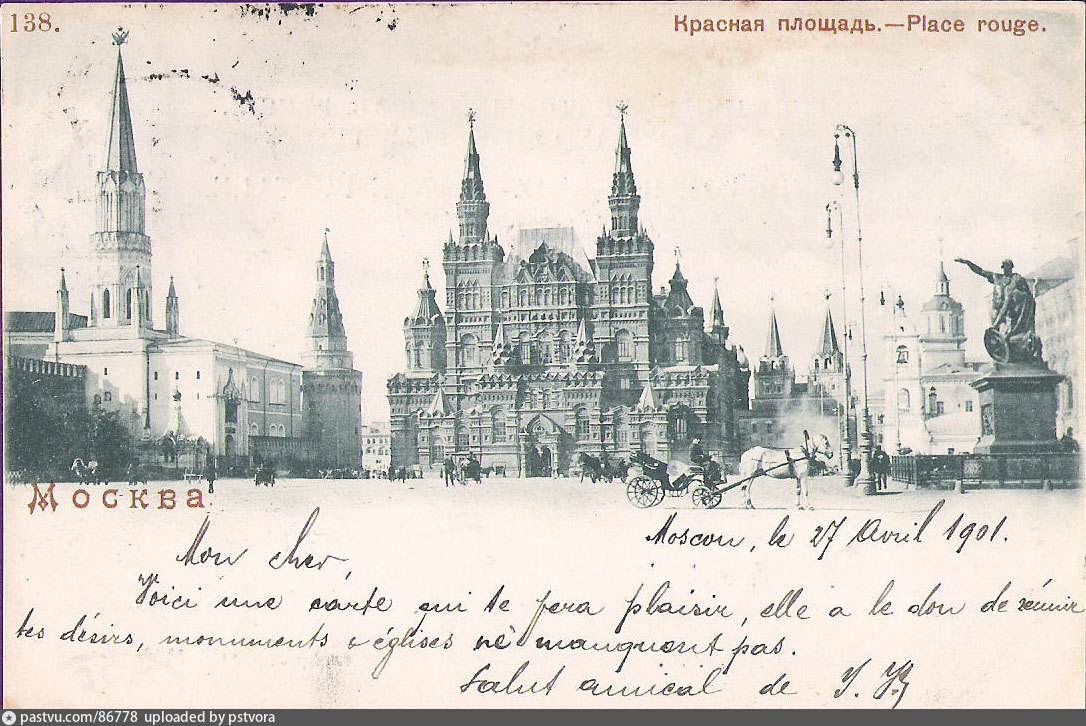 138.
Красная площадь.—Place rouge.
Москва.
Moscou, le 27 Avril 1901.
Mon cher,
Voici une carte qui te fera plaisir, elle a le don de réunir
tes désirs, monuments & églises ne manquent pas.
Salut amical de
pastvu.com/86778 uploaded by pstvora